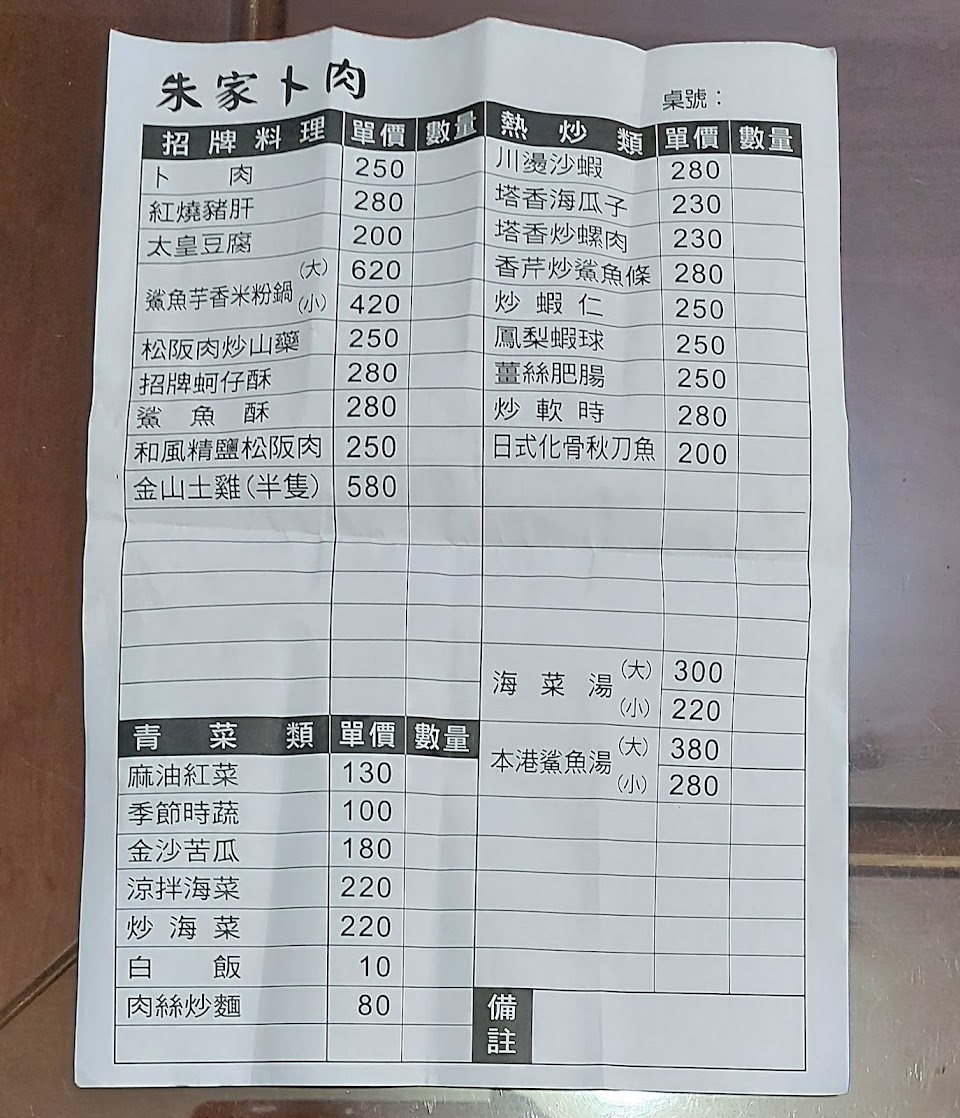 朱家卜肉
桌號：
招牌料理 單價 數量
卜肉 250
紅燒豬肝 280
太皇豆腐 200
鯊魚芋香米粉鍋 (大) 620
(小) 420
松阪肉炒山藥 250
招牌蚵仔酥 280
鯊魚酥 280
和風精鹽松阪肉 250
金山土雞(半隻) 580
青菜類 單價 數量
麻油紅菜 130
季節時蔬 100
金沙苦瓜 180
涼拌海菜 220
炒海菜 220
白飯 10
肉絲炒麵 80
熱炒類 單價 數量
川燙沙蝦 280
塔香海瓜子 230
塔香炒螺肉 230
香芹炒鯊魚條 280
炒蝦仁 250
鳳梨蝦球 250
薑絲肥腸 250
炒軟時 280
日式化骨秋刀魚 200
海菜湯 (大) 300
(小) 220
本港鯊魚湯 (大) 380
(小) 280
備註